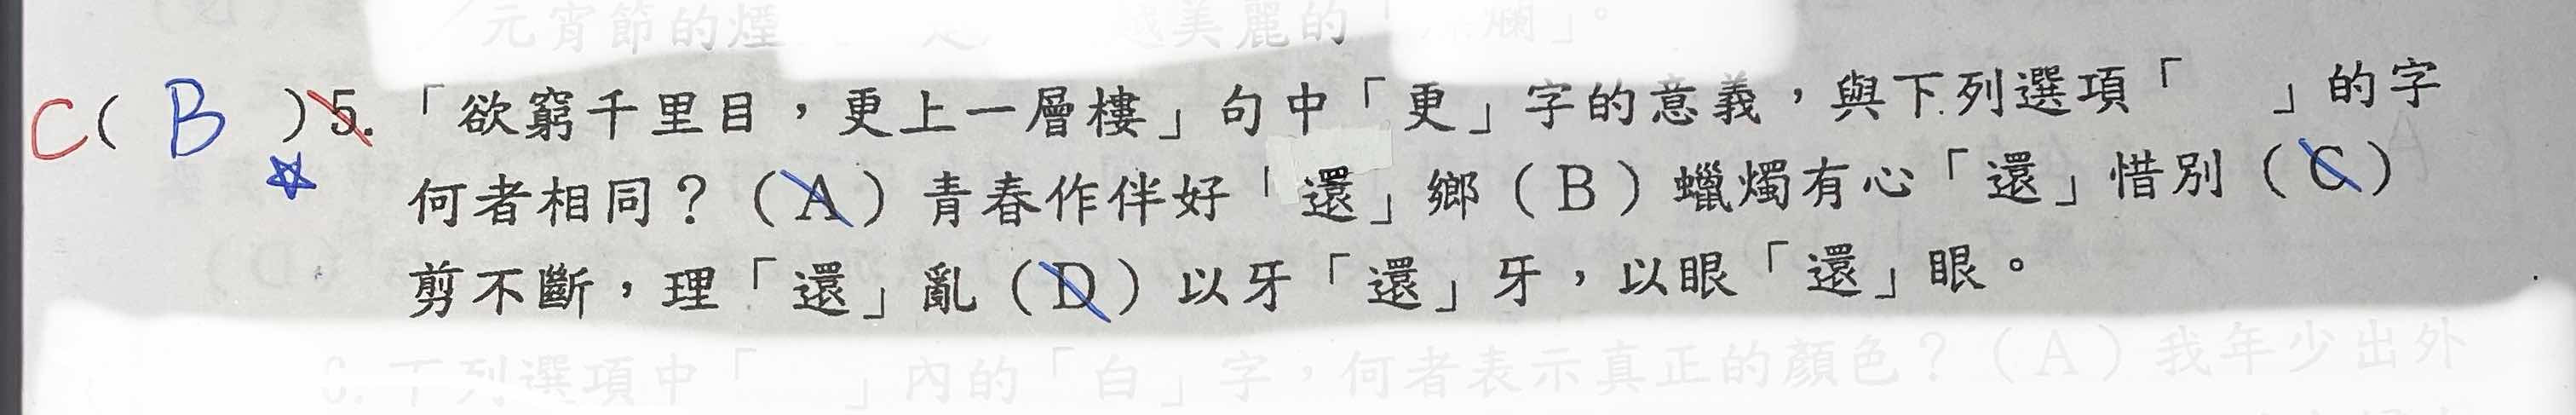 元宵節的煙 越美麗的「 爛」。
C( B )5.「欲窮千里目，更上一層樓」句中「更」字的意義，與下列選項「 」的字
何者相同？（A）青春作伴好「還」鄉（B）蠟燭有心「還」惜別（C）
剪不斷，理「還」亂（D）以牙「還」牙，以眼「還」眼。
6.下列選項中「 」內的「白」字，何者表示真正的顏色？（A）我年少出外